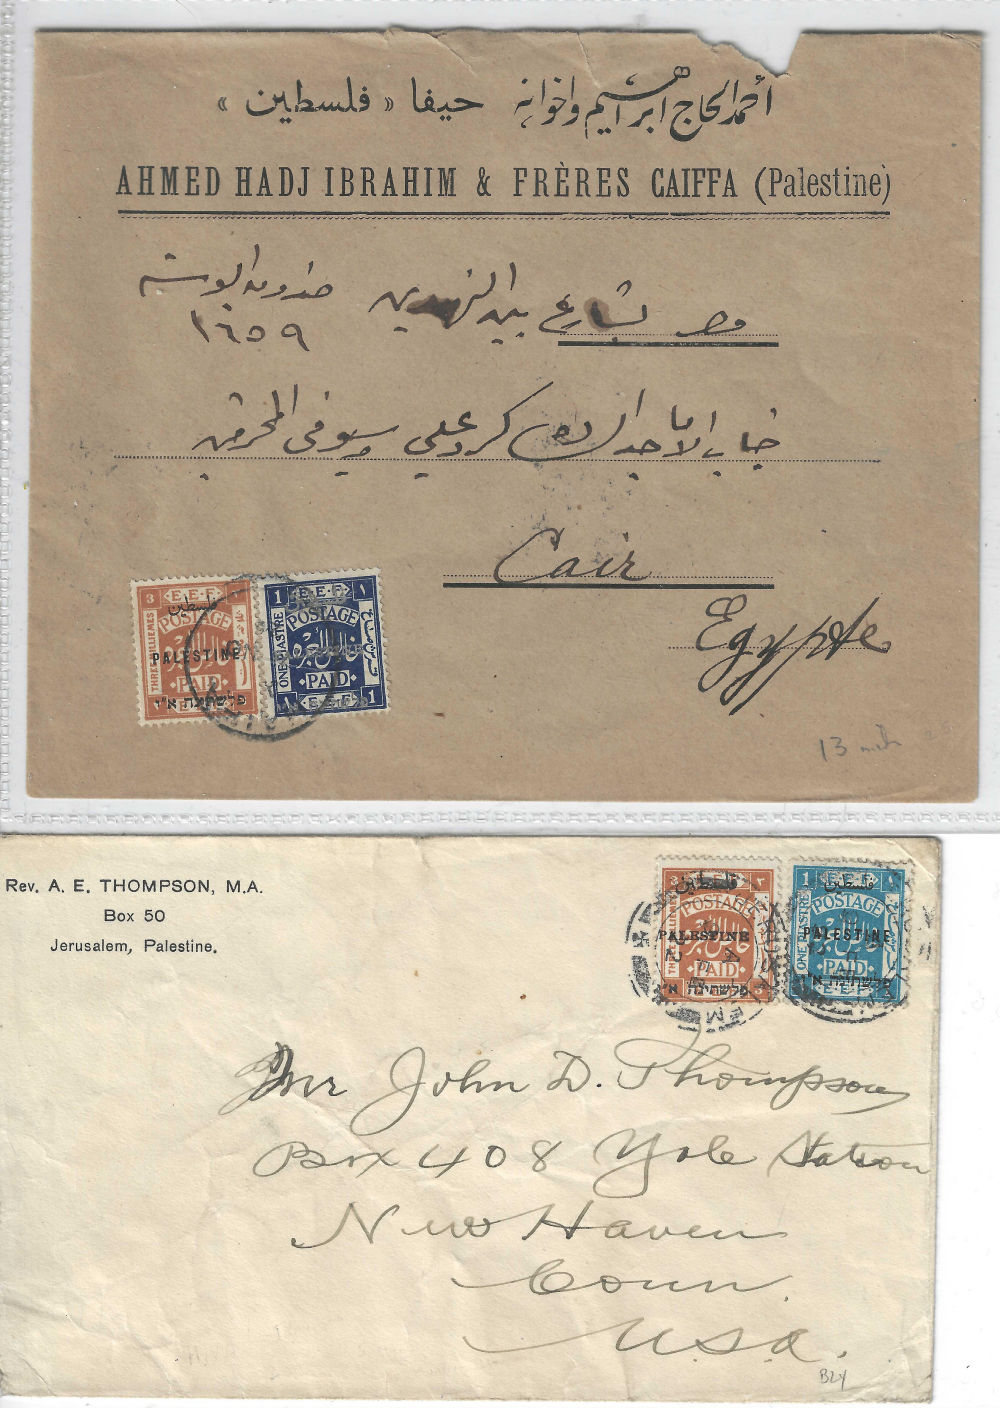 أحمد الحاج ابراهيم واخوانه حيفا « فلسطين »
AHMED HADJ IBRAHIM & FRÈRES CAIFFA (Palestine)
مصر بشارع بين النهدين صندوق البوسته
١٦٥٩
جناب الاماجد
Cair
Egypte
13 mils
3 E.E.F
فلسطين
POSTAGE
THREE MILLIEMES
PALESTINE
PAID
פלשתינה א״י
1 E.E.F ١
POSTAGE
ONE PIASTRE
PAID
١ E.E.F 1
Rev. A. E. THOMPSON, M.A.
Box 50
Jerusalem, Palestine.
3 E.E.F ٣
فلسطين
POSTAGE
PALESTINE
PAID
פלשתינה א״י
1 E.E.F
فلسطين
POSTAGE
ONE PIASTRE
PALESTINE
PAID
פלשתינה א״י
E.E.F
JERUSALEM
Mr John D. Thompson
Box 408 Yale Station
New Haven
Conn.
U.S.A.